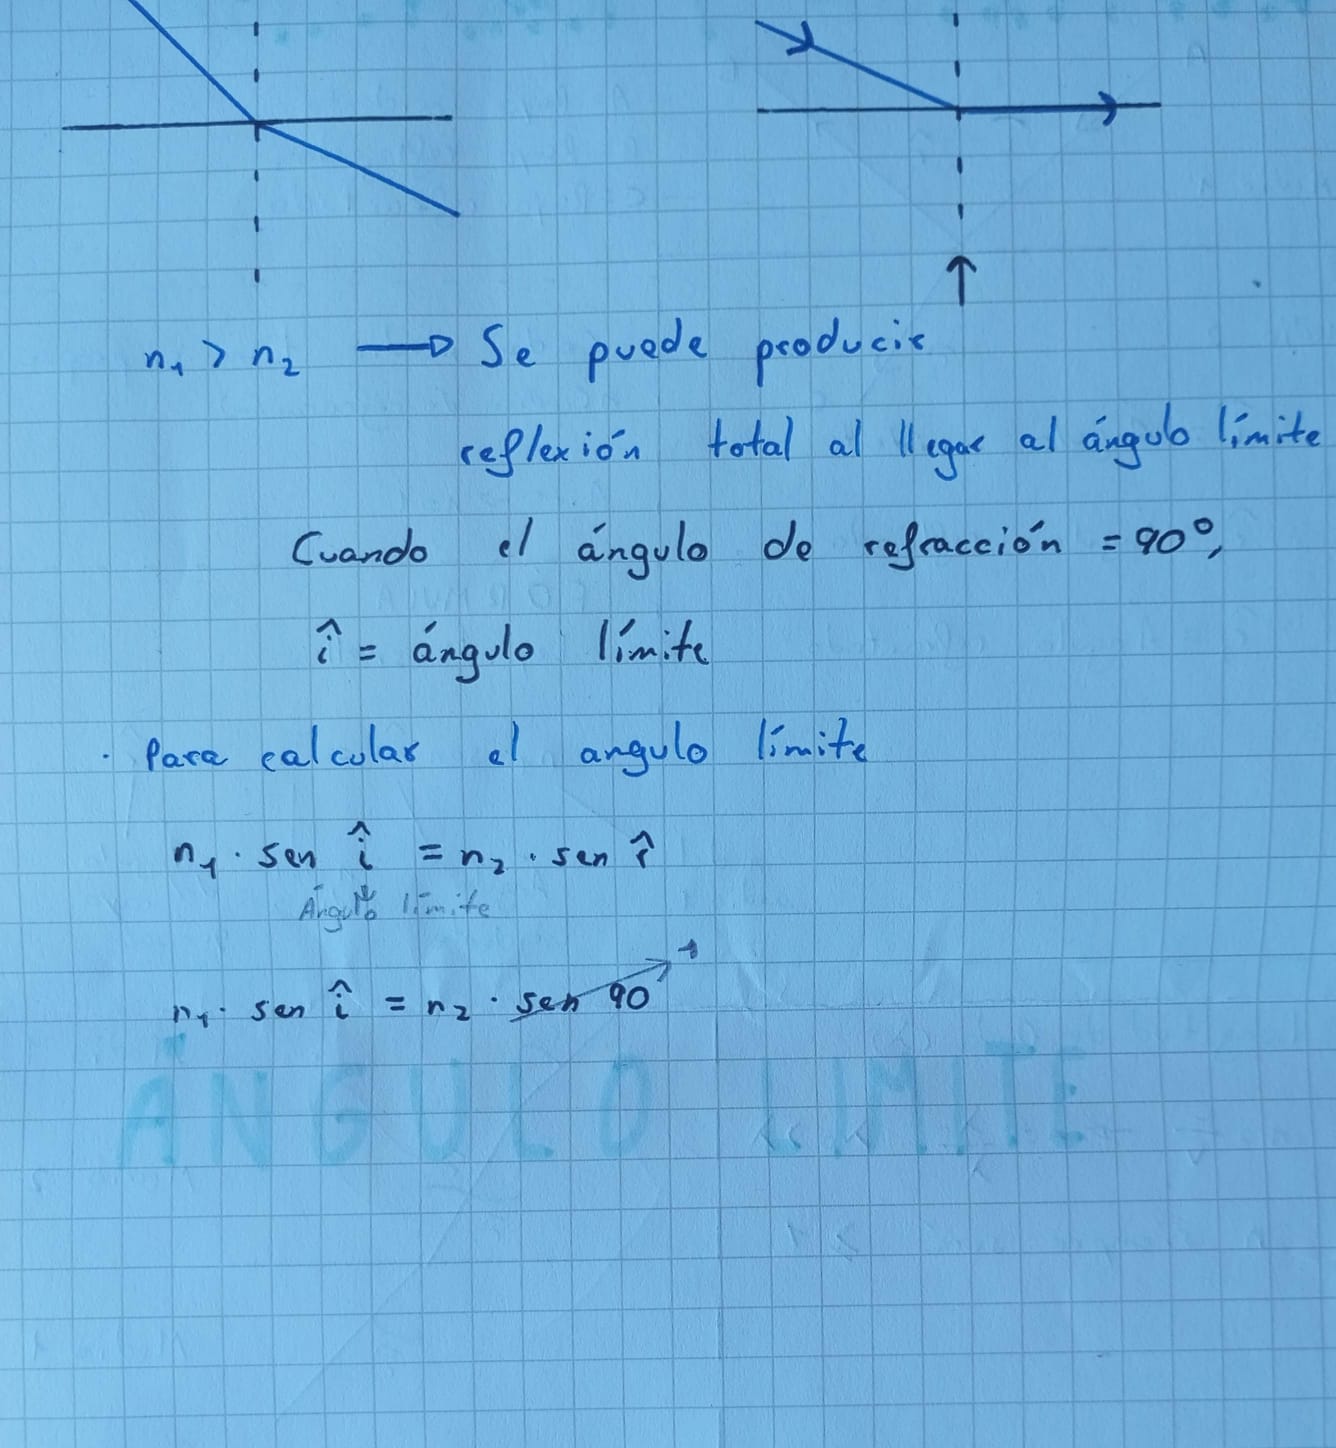 n₁ > n₂ → Se puede producir
reflexión total al llegar al ángulo límite
Cuando el ángulo de refracción = 90°,
î = ángulo límite
· Para calcular el angulo límite
n₁ · sen î = n₂ · sen r̂
Ángulo límite
1
n₁ · sen î = n₂ · sen 90
ÁNGULO LÍMITE